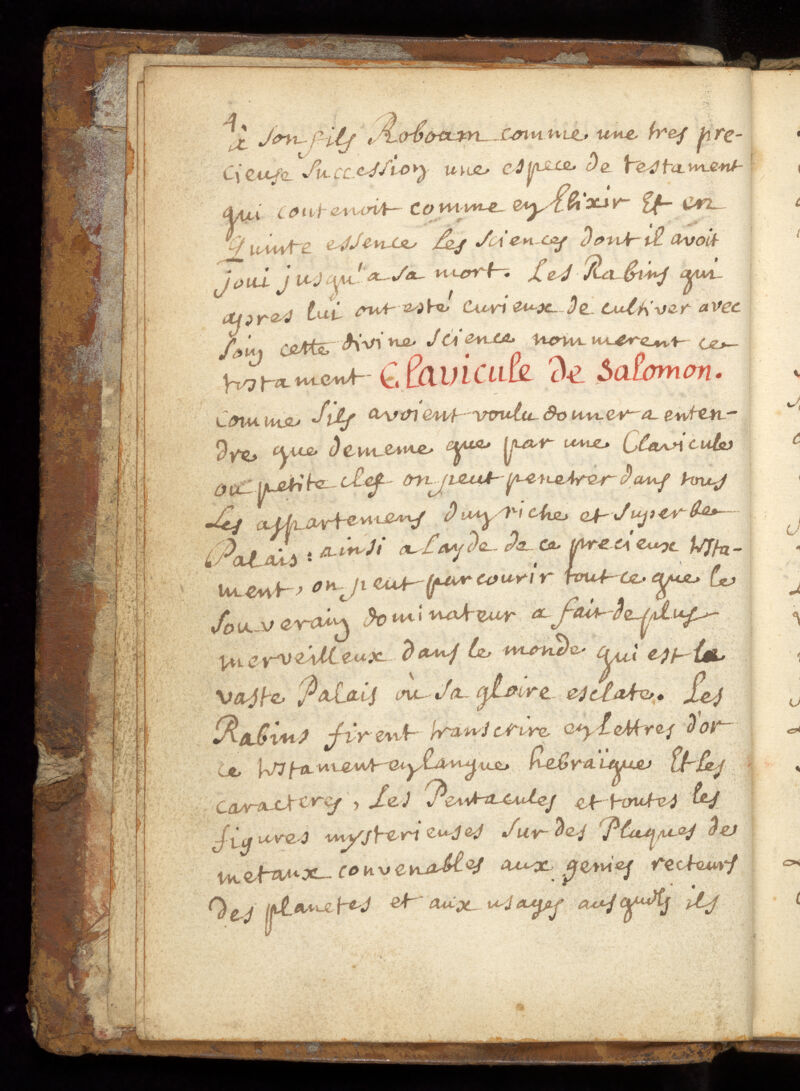 4.
à son fils Roboam comme une tres pre-
cieuse succession une espece de testament
qui contenoit comme en Elixir Et en
Quinte essence les sciences dont il avoit
joui jusqu'a sa mort. Les Rabins qui
apres lui ont esté curieux de cultiver avec
soin cette divine science nommerent ce
testament Clavicule de Salomon.
comme sils avoient voulu donner a enten-
dre que dememe que par une Clavicule
ou petite clef on peut penetrer dans tous
Les appartemens dun riche et superbe
Palais : ainsi a layde de ce precieux testa-
ment, on peut parcourir tout ce que le
souverain dominateur a fait de plus
merveilleux dans le monde qui est le
vaste Palais où sa gloire esclate. Les
Rabins firent transcrire en lettres d'or
ce testament en langue hebraïque Et les
caracteres, Les Pentacules et toutes les
figures mysterieuses sur des Plaques de
metaux convenables aux genies recteurs
des planetes et aux usages ausquels ils